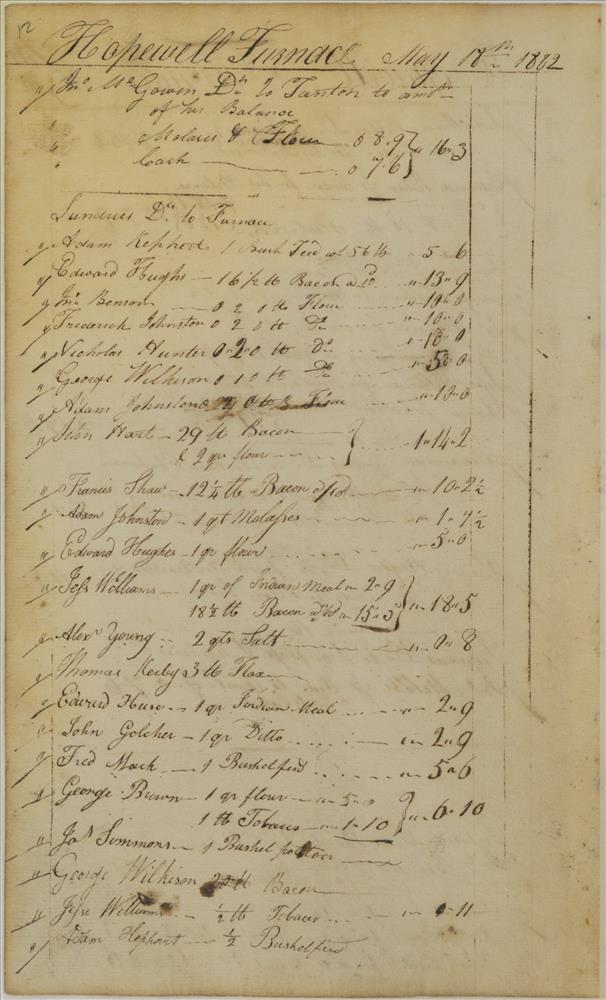 12
Hopewell Furnace May 18th 1802
Jno. McGowin Dr. to to amt
of his Balance
" Molases & Flour 0 8.9 } " 16 " 3
" Cash 0 7.6
Sundries Drs. to Furnace
Adam 1 Bush Feed wt 56 lb " 5 " 6
Edward Hughs 16 1/2 lb Bacon a 10d " 13 " 9
Jno Benson 0 2 0 lb Flour " 10 " 0
Frederick Johnston 0 2 0 lb Do " 10 " 0
Nicholas Hunter 0 " 2 " 0 lb Do " 10 " 0
George Wilkison 0 1 0 lb Do " 5 0
Adam Johnston 0 lb Flour
John Hart 29 lb Bacon } 1 " 14 " 2
& 2 qr flour
Francis Shaw 12 1/4 lb Bacon a 10d " 10 " 2 1/2
Adam Johnston 1 qt Molasses " 1 " 7 1/2
Edward Hughes 1 qr flour " 5 " 0
Jess Williams 1 qr of Indian Meal 2 " 9 } " 18 " 5
18 1/2 lb Bacon 15 " 5
Alexr Young 2 qts Salt " 0 " 8
Thomas Kerby 3 lb Flax
Edward 1 qr Indian Meal " 2 " 9
John Golcher 1 qr Ditto " 2 " 9
Fred Mack 1 Bushel feed " 5 " 6
George Brown 1 qr flour " 5 " 0 } " 6 " 10
1 lb Tobacco " 1 " 10
Jas Simmons 1 Bushel potatoes
George Wilkison lb Bacon
Jesse Williams 1/2 lb Tobaco " 0 " 11
Adam Hephart 1/2 Bushel feed